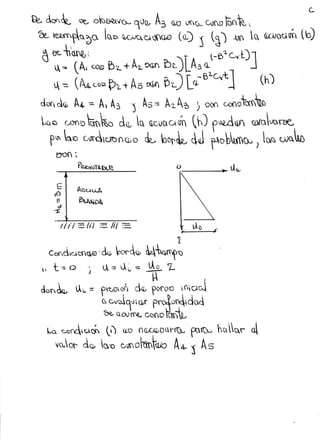 De donde se observa que A3 es una constante,
Se reemplaza las ecuaciones (e) y (g) en la ecuación (b)
y se tiene:
u = (A1 cos Bz + A2 sen Bz)[A3 e(-B²Cvt)]
u = (A4 cos Bz + A5 sen Bz)[e-B²Cvt] (h)
donde A4 = A1 A3 y A5 = A2 A3 ; son constantes
Las constantes de la ecuación (h) pueden evaluarse
por las condiciones de borde del problema, las cuales
son:
PERMEABLE
ARCILLA
BLANDA
o
ui
uo
z
Condiciones de borde del tiempo
i. t = o ; u = ui = uo/H z
donde ui = presión de poros inicial
a cualquier profundidad
Se asume constante
La condición (i) es necesaria para hallar el
valor de las constantes A4 y A5